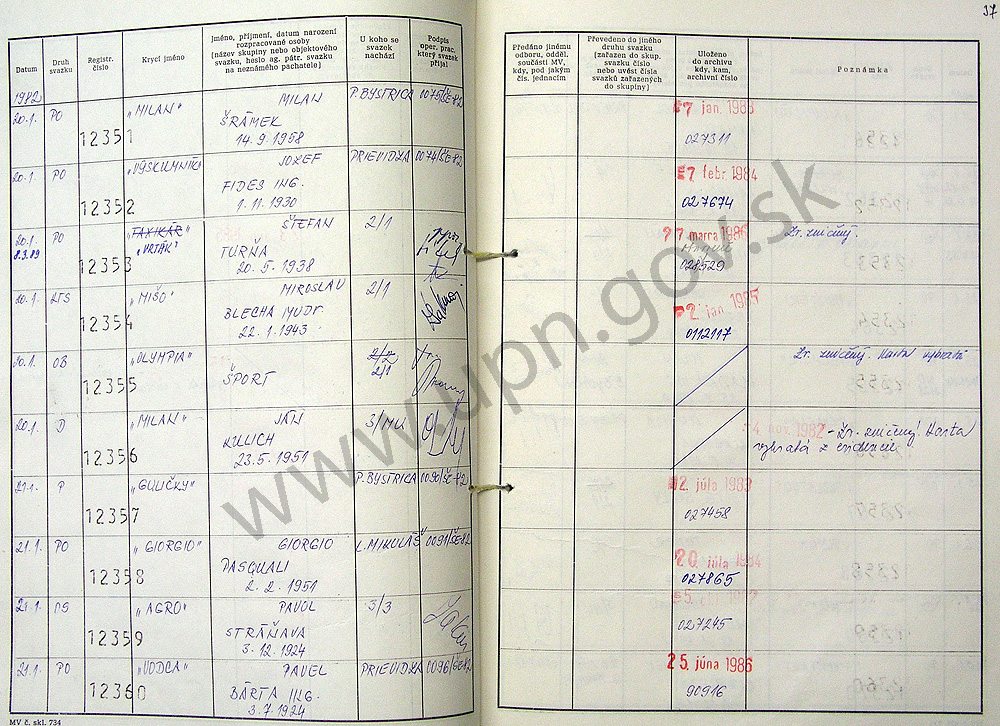 37
Datum
Druh svazku
Registr. číslo
Krycí jméno
Jméno, příjmení, datum narození
rozpracované osoby
(název skupiny nebo objektového
svazku, heslo ag. pátr. svazku
na neznámého pachatele)
U koho se
svazek
nachází
Podpis
oper. prac.
který svazek
přijal
Předáno jinému
odboru, odděl.
součásti MV,
kdy, pod jakým
čís. jednacím
Převedeno do jiného
druhu svazku
(zařazen do skup.
svazku číslo
nebo uvést čísla
svazků zařazených
do skupiny)
Uloženo
do archivu
kdy, kam,
archivní číslo
Poznámka
1982
20.1. PO 12351 „MILAN" MILAN P. BYSTRICA 0075/ŠE-82
ŠRÁMEK
14.9.1958
27 jan. 1983
027311
20.1 PO 12352 „VÝSKUMNÍK" JOZEF PRIEVIDZA 0074/ŠE-82
FIDES ING.
1.11.1930
27 febr 1984
027674
20.1. PO 12353 „TAXIKÁR" ŠTEFAN 2/1
8.3.89 „VRTÁK"
TURŇA
20.5.1938
27 marca 1986
028529
Zr. zničený.
20.1. 12354 „MIŠO" MIROSLAV 2/1
BLECHA MUDr
22.1.1943
2. jan. 1985
0112117
20.1. OB 12355 „OLYMPIA" 2/2
ŠPORT 2/1
Zr. zničený. Karta vybratá
20.1. D 12356 „MILAN" JÁN 3/MK
KULICH
23.5.1951
4 nov. 1982 - Zr. zničený. Karta
vybratá z evidencie
21.1. P 12357 „GULIČKY" P. BYSTRICA 0090/ŠE-82
12. júla 1983
027458
21.1. PO 12358 „GIORGIO" GIORGIO L. MIKULÁŠ 0091/ŠE-82
PASQUALI
2.2.1951
20. júla 1984
027865
21.1. 12359 „AGRO" PAVOL 3/3
STRÁŇAVA
3.12.1924
027245
21.1. PO 12360 „VODCA" PAVEL PRIEVIDZA 0096/ŠE-82
BÁRTA ING.
3.7.1924
25. júna 1986
90916
MV č. skl. 734
www.upn.gov.sk